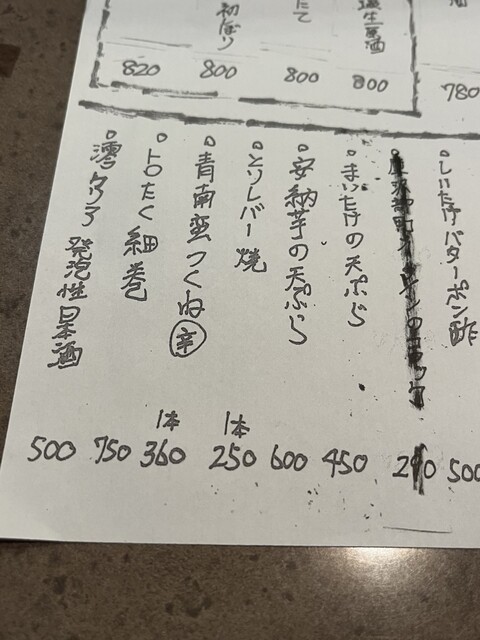 酒
780
生原酒
800
たて
800
初しぼり
800
820
しいたけバターポン酢
500
まいたけの天ぷら
450
安納芋の天ぷら
600
とりレバー焼
1本
250
青南蛮つくね 辛
1本
360
トロたく細巻
750
澪 発泡性日本酒
500